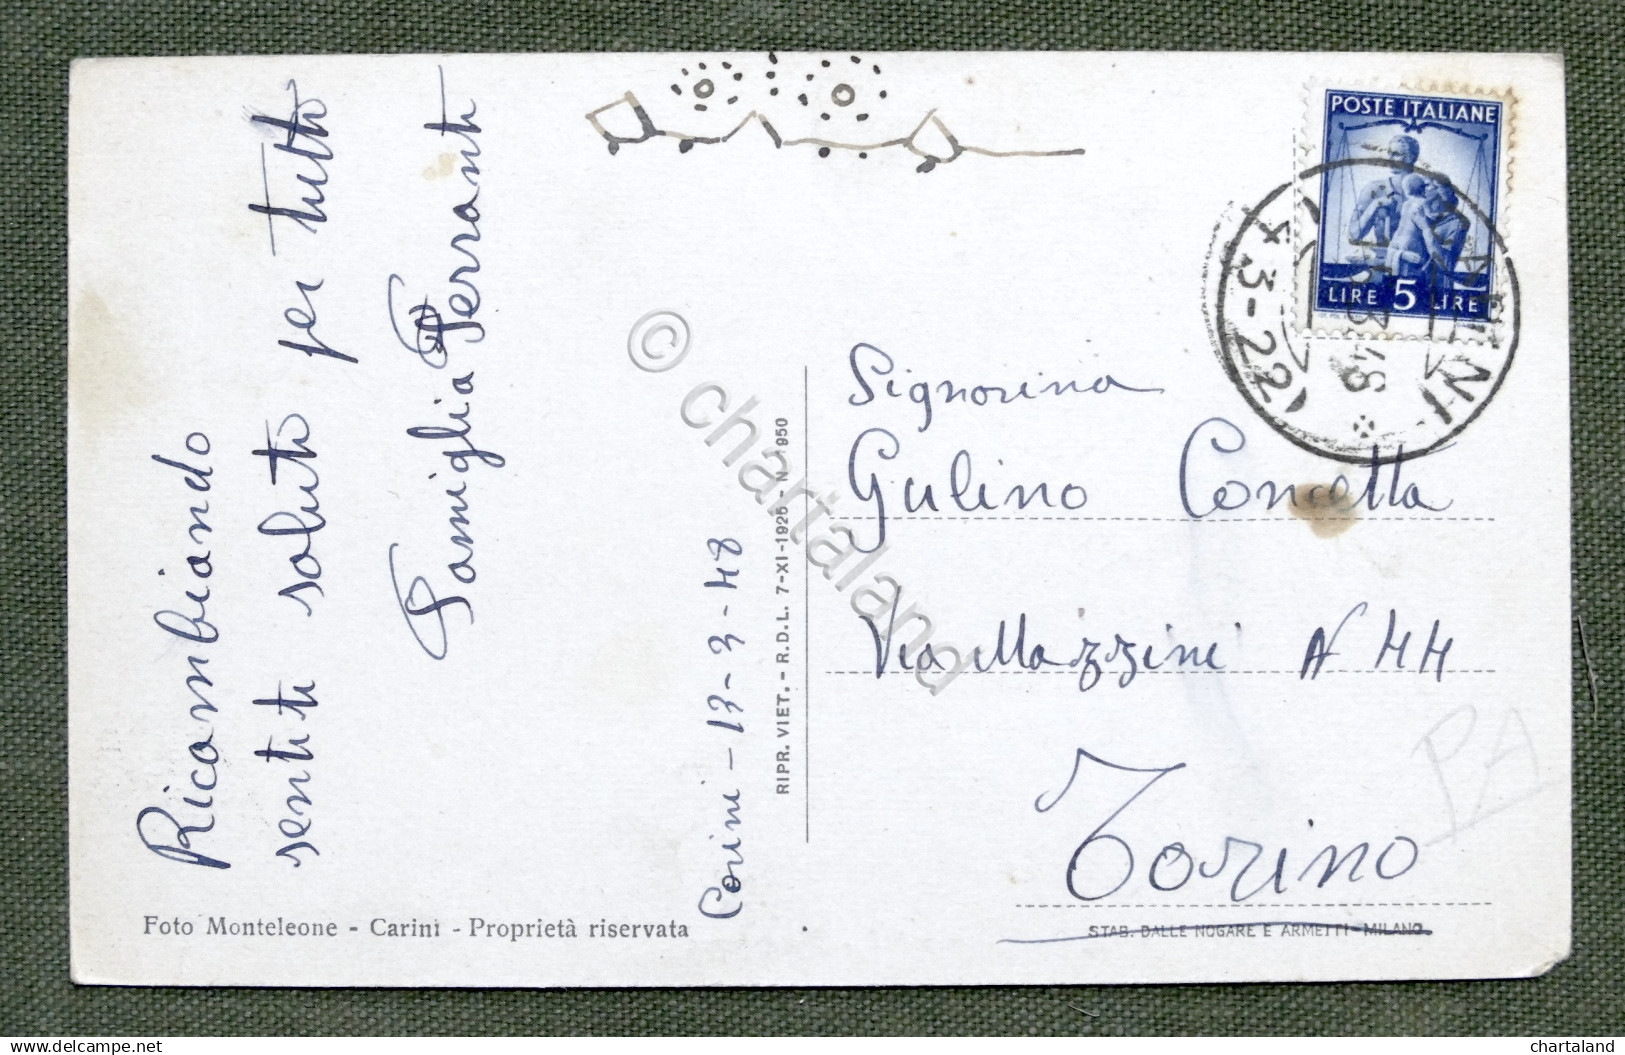 Ricambiando
sentiti saluti per tutti
Famiglia Ferranti
Carini - 13 - 3 - 48
Foto Monteleone - Carini - Proprietà riservata
RIPR. VIET. - R.D.L. 7-XI-1925 - N. 1950
POSTE ITALIANE
LIRE 5 LIRE
CARINI
13.3.48
43-22
Signorina
Gulino Concetta
Via Mazzini N 44
Torino
STAB. DALLE NOGARE E ARMETTI-MILANO.
PA
© chartaland
delcampe.net
chartaland